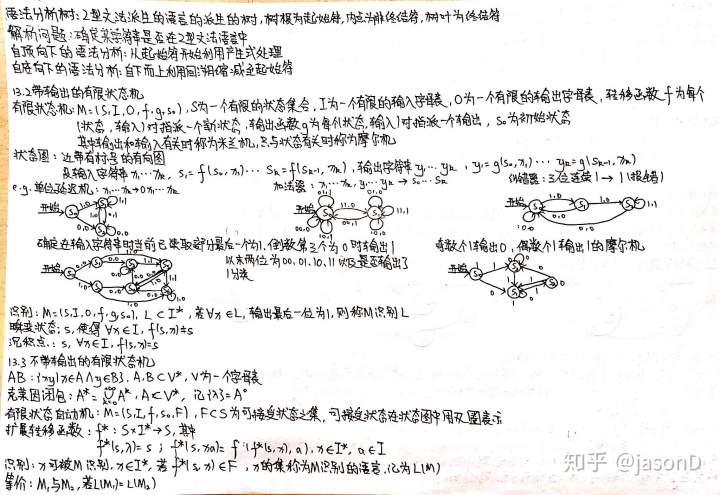 语法分析树：2型文法派生的语言的派生的树，树根为起始符，内点为非终结符，树叶为终结符
解析问题：确定某字符串是否在2型文法语言中
自顶向下的语法分析：从起始符开始利用产生式处理
自底向下的语法分析：自下而上利用回溯缩减至起始符
13.2带输出的有限状态机
有限状态机：M=(S,I,O,f,g,s₀)，S为一个有限的状态集合，I为一个有限的输入字母表，O为一个有限的输出字母表，转移函数f为每个
(状态，输入)对指派一个新状态，输出函数g为每个(状态，输入)对指派一个输出，s₀为初始状态
其中输出和输入有关时称为米兰机，只与状态有关时称为摩尔机
状态图：边带有标号的有向图
及输入字符串x₁…xₖ，s₁=f(s₀,x₁)… sₖ=f(sₖ₋₁,xₖ)，输出字符串y₁…yₖ，y₁=g(s₀,x₁)… yₖ=g(sₖ₋₁,xₖ)
e.g.单位延迟机：x₁…xₖ→0x₁…xₖ 加法器：x₁…xₖ,y₁…yₖ→s₀…sₖ 纠错器：3位连续1→1(报错)
开始 开始 开始
确定在输入字符串时当前已读取部分最后一个为1，倒数第三个为0时输出1 奇数个1输出0，偶数个1输出1的摩尔机
以末两位为00,01,10,11以及是否输出了
1分类
开始 开始
识别：M=(S,I,O,f,g,s₀)，L⊂I*，若∀x∈L，输出最后一位为1，则称M识别L
瞬变状态：s，使得∀x∈I，f(s,x)≠s
沉积点：s，∀x∈I，f(s,x)=s
13.3不带输出的有限状态机
AB：{xy|x∈A∧y∈B}，A,B⊂V*，V为一个字母表
克莱因闭包：A*=∪Aᵏ，A⊂V*，记{λ}=A⁰
有限状态自动机：M=(S,I,f,s₀,F)，F⊂S为可接受状态之集，可接受状态在状态图中用双圈表示
扩展转移函数：f*：S×I*→S，其中
f*(s,λ)=s；f*(s,xa)=f(f*(s,x),a)，x∈I*，a∈I
识别：x可被M识别，x∈I*，若f*(s₀,x)∈F，x的集称为M识别的语言，记为L(M)
等价：M₁与M₂，若L(M₁)=L(M₂)
知乎 @jasonD